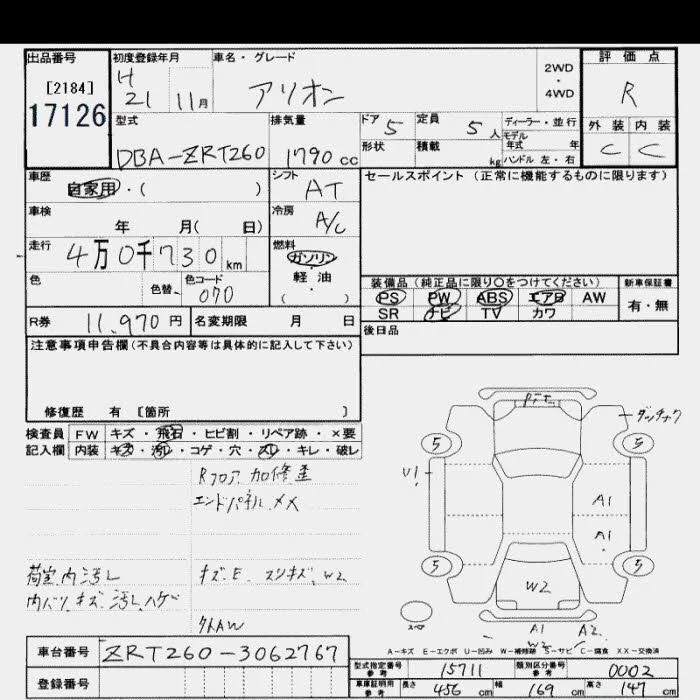 出品番号 初度登録年月 車名・グレード 2WD・4WD 評価点
[2184] H 21 11月 アリオン R
17126
型式 排気量 ドア 5 定員 5人 ディーラー・並行 外装 内装
モデル年式 年
DBA-ZRT260 1790cc 形状 積載 kg ハンドル 左・右 C C
車歴 シフト セールスポイント(正常に機能するものに限ります)
自家用・( ) AT
車検 年 月( 日) 冷房 A/C
走行 4万0千730km 燃料 ガソリン・軽・油 ( )
色 色替 色コード 070 装備品(純正品に限り〇をつけてください) 新車保証書
PS PW ABS エアB AW 有・無
R券 11,970円 名変期限 月 日 SR ナビ TV カワ
注意事項申告欄(不具合内容等は具体的に記入して下さい) 後日品
修復歴 有 [箇所 ]
検査員 FW キズ・飛石・ヒビ割・リペア跡・×要
記入欄 内装 キズ・汚レ・コゲ・穴・スレ・キレ・破レ
ダッチャク
5 5
Rフロア 加修歪
U1
エンドパネル XX
A1
A1
5 5
荷室内汚レ キズ.E スリキズ.W2
W2
内バリ キズ 汚レ ハゲ
外AW
A1 A2
W2
A-キズ E-エクボ U-凹み W-補修跡 S-サビ C-腐食 XX-交換済
車台番号 ZRT260-3062767
型式指定番号 参考 15711 類別区分番号 参考 0002
登録番号 車庫証明用 参考 長さ 456cm 幅 169cm 高さ 147cm